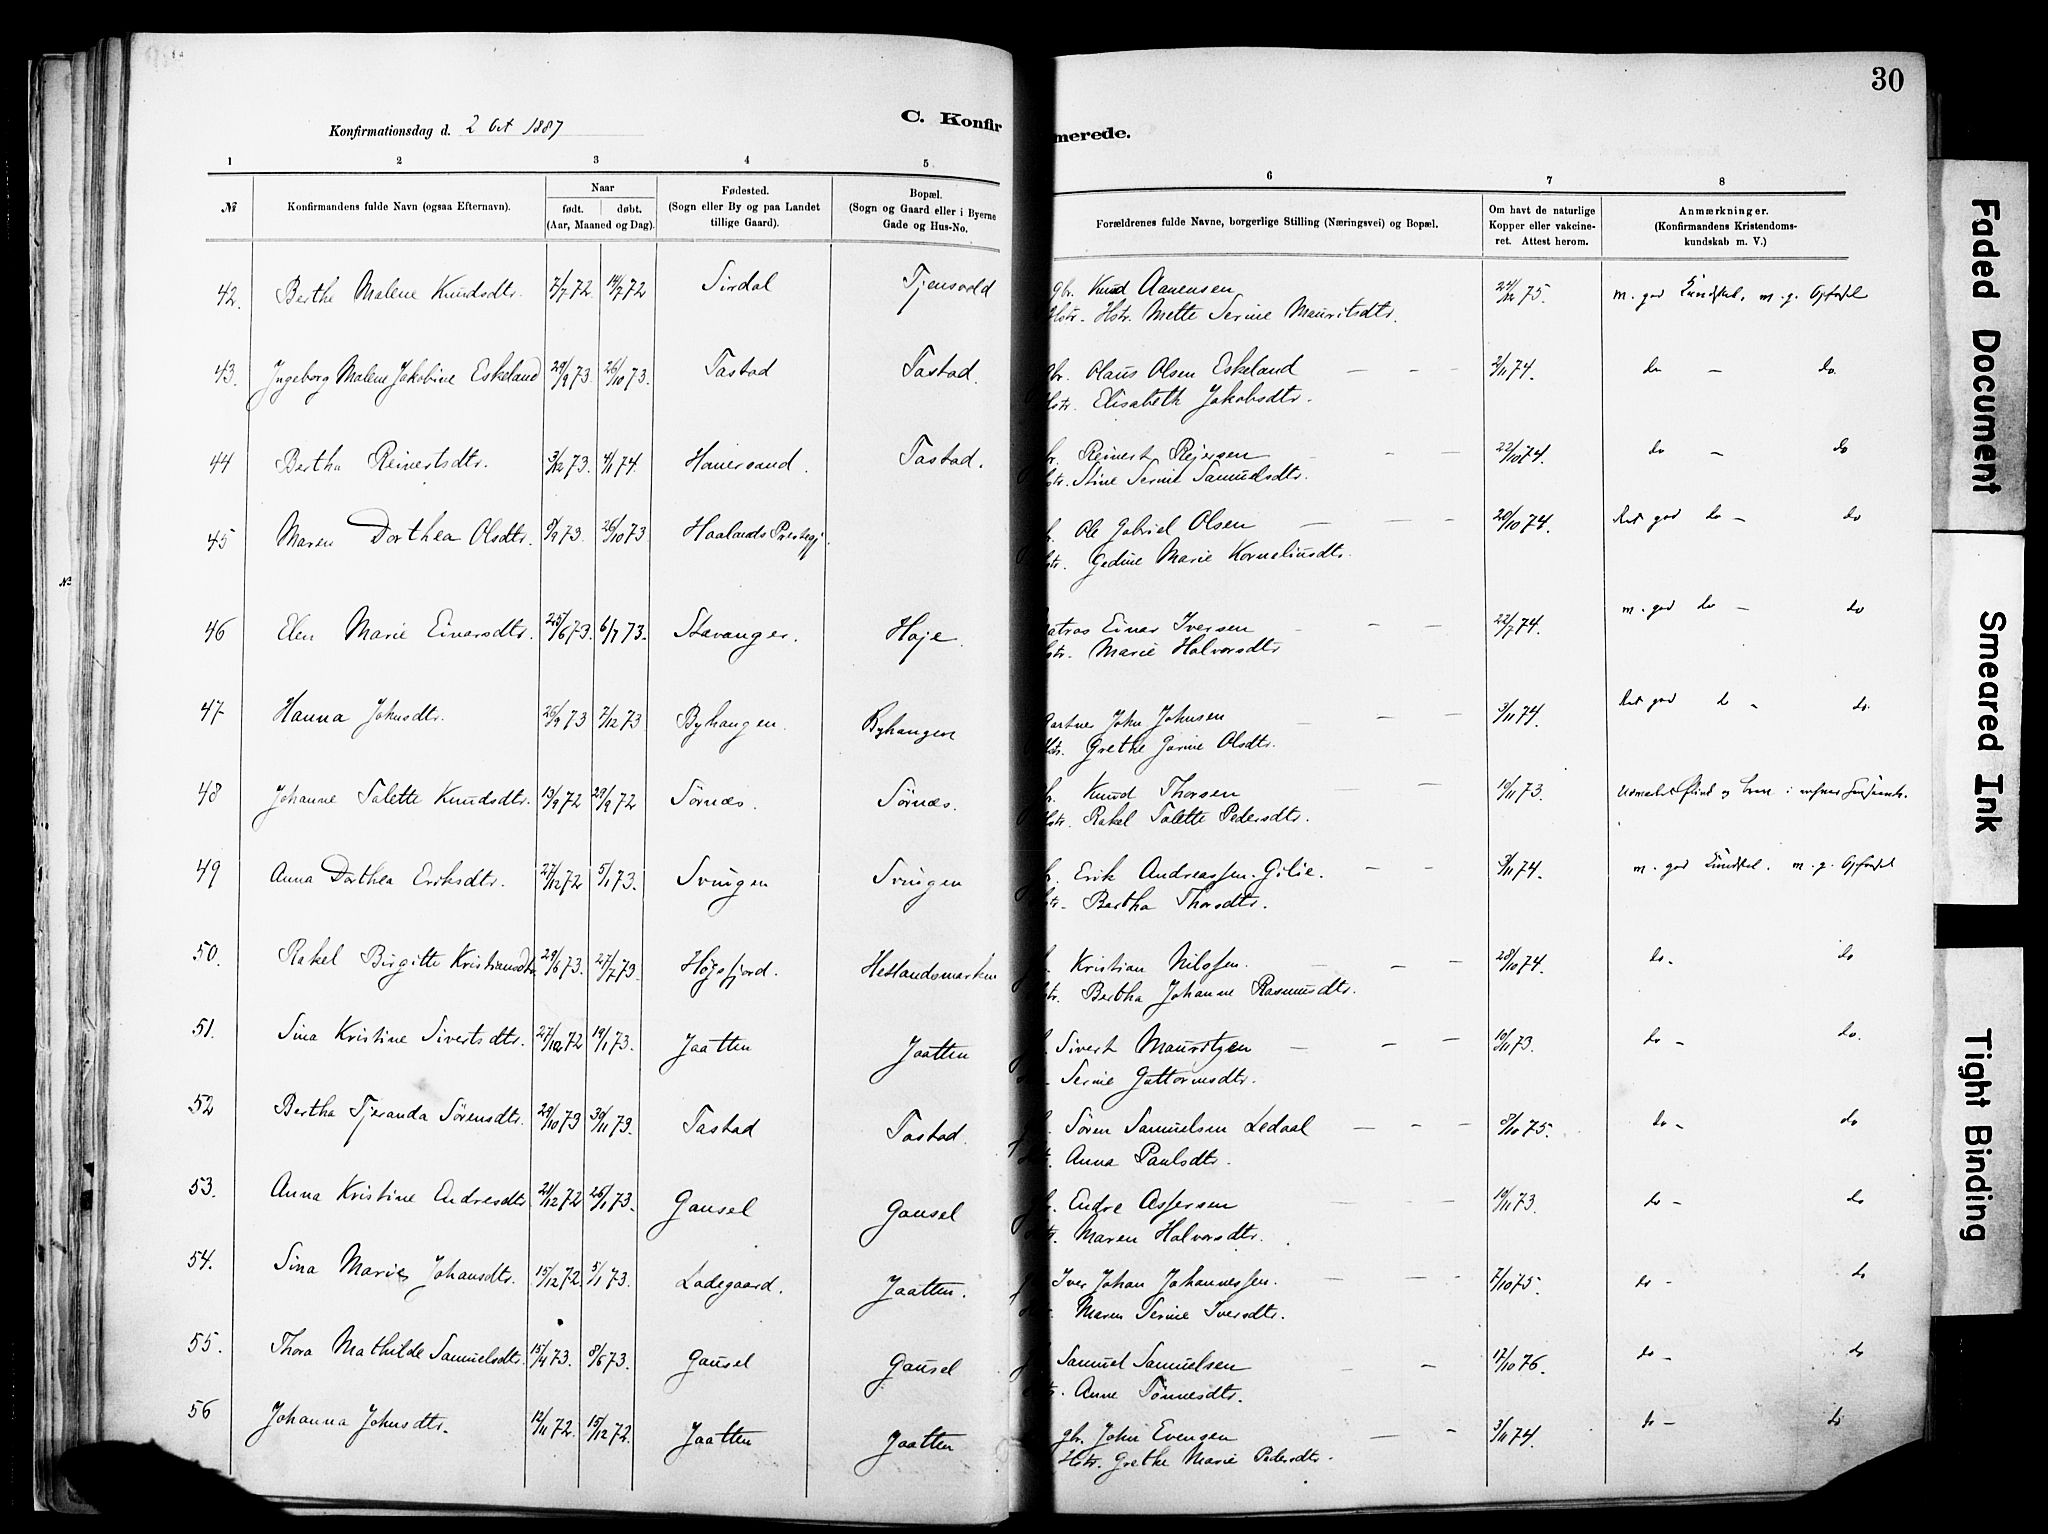 30
Konfirmationsdag d. 2 Oct 1887
C. Konfir merede.
1 2 3 4 5 6 7 8
№ Konfirmandens fulde Navn (ogsaa Efternavn). Naar født. døbt. (Aar, Maaned og Dag). Fødested. (Sogn eller By og paa Landet tillige Gaard). Bopæl. (Sogn og Gaard eller i Byerne Gade og Hus-No. Forældrenes fulde Navne, borgerlige Stilling (Næringsvei) og Bopæl. Om havt de naturlige Kopper eller vakcineret. Attest herom. Anmærkninger. (Konfirmandens Kristendomskundskab m. V.)
42. Berthe Malene Knudsdtr. 7/7 72. 14/7 72 Sirdal Tjensvold gbr. Knud Aanensen 75. m. god Kundskab, m. g. Opførsel
Hstr. Mette Serine Mauritsdtr.
43. Ingeborg Malene Jakobine Eskeland 29/9 73 26/10 73. Tastad Tastad. gbr. Olaus Olsen Eskeland — — - 2/11 74. do — do.
Hstr. Elisabeth Jakobsdtr.
44 Bertha Reinertsdtr. 3/12 73. 4/1 74. Tastad. Reinert Rejersen - - 22/10 74. do — do
Stine Serine Samuelsdtr.
45 Maren Dorthea Olsdtr. 9/9 73. 26/10 73. Haalands Prestegj. Ole Gabriel Olsen — — - 20/10 74. Ret god do — do
Gedine Marie Korneliusdtr.
46 Elen Marie Einarsdtr. 25/6 73. 6/7 73. Stavanger. Høje. Matros Einar Iversen - - - 22/7 74. m. god do — do
Hstr. Marie Halvorsdtr
47 Hanna Johnsdtr. 26/9 73 7/12 73 Byhaugen. Byhaugen Gartner John Johnsen — - — 3/11 74. Ret god do - do.
Hstr. Grethe Gurine Olsdtr.
48 Johanne Tolette Knudsdtr. 13/9 72 29/9 72 Sørnæs. Sørnæs. Knud Thorsen — 10/11 73.
Hstr. Rakel Tolette Pedersdtr.
49 Anna Dorthea Eriksdtr. 27/12 72 5/1 73. Svingen Svingen Erik Andreassen Gilje. - — 3/11 74. m. god Kundskab. m. g. Opførsel
Bertha Thorsdtr.
50. Rakel Birgitte Kristiansdtr. 29/6 73. 27/7 73. Høgsfjord. Hetlandsmarken Kristian Nilssen. — - - 28/10 74. do- do
Bertha Johanne Rasmusdtr.
51. Sina Kristine Sivertsdtr. 27/12 72 19/1 73. Jaatten Jaatten Sivert Mauritzen — - — 10/11 73. do - do.
Serine Guttormsdtr.
52 Bertha Tjeranda Sørensdtr. 29/10 73 30/11 73. Tastad Tastad. Søren Samuelsen Ledaal — — - 8/10 75. do - do
Anna Paulsdtr.
53. Anna Kristine Endresdtr 21/12 72 26/1 73. Gausel Gausel Endre Assersen — — - 10/11 73. do - do
Maren Halvorsdtr.
54. Sina Marie Johansdtr. 15/12 72. 5/1 73. Ladegaard. Jaatten. Iver Johan Johannessen. — — - 7/10 75. do - do
Maren Serine Iversdtr.
55. Thora Mathilde Samuelsdtr. 15/4 73. 8/6 73. Gausel Gausel Samuel Samuelsen — - 17/10 76. do - do
Anne Tønnesdtr.
56 Johanna Johnsdtr. 12/11 72. 15/12 72. Jaatten Jaatten gbr. John Evensen — - 3/11 74. do — do
Hstr. Grethe Marie Pedersdtr.
Faded Document
Smeared Ink
Tight Binding